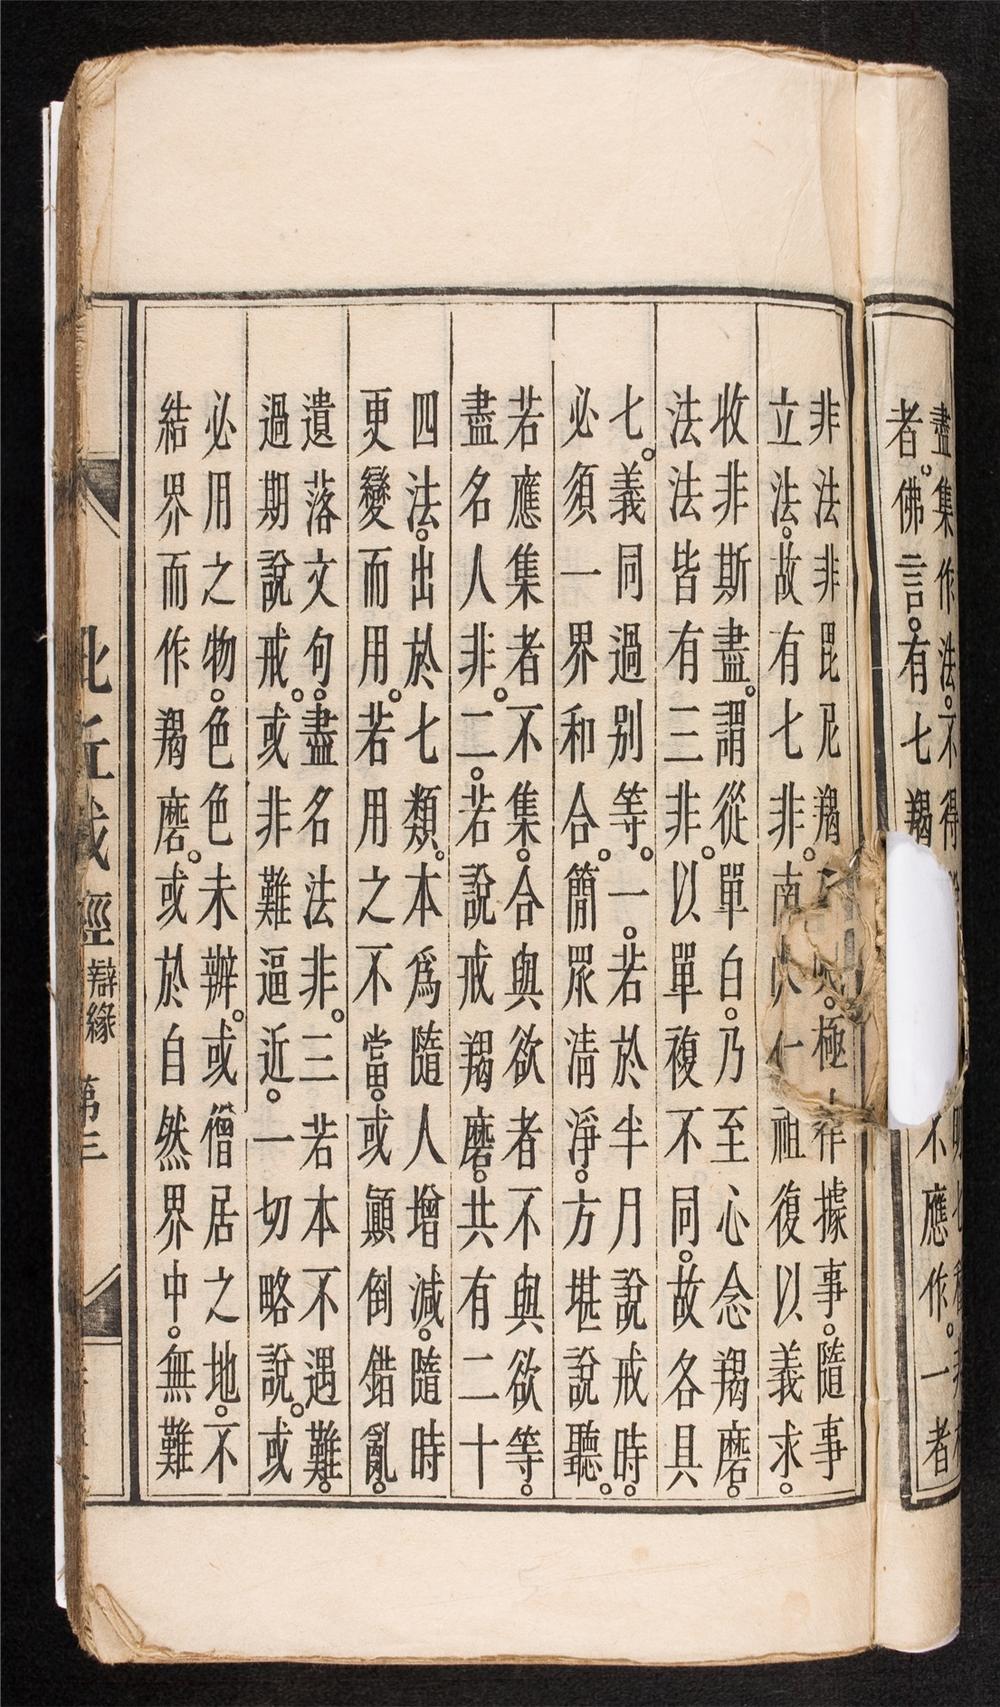 盡集作法。不得
者。佛言。有七羯不應作。一者
非法非毘尼羯。極據事。隨事
立法。故有七非。南祖復以義求。
收非斯盡。謂從單白。乃至心念羯磨。
法法皆有三非。以單複不同。故各具
七。義同過別等。一。若於半月說戒時。
必須一界和合。簡眾清淨。方堪說聽。
若應集者不集。合與欲者不與欲等。
盡名人非。二。若說戒羯磨。共有二十
四法。出於七類。本爲隨人增減。隨時
更變而用。若用之不當。或顚倒錯亂。
遺落文句。盡名法非。三若本不遇難。
過期說戒。或非難逼近。一切略說。或
必用之物。色色未辦。或僧居之地。不
結界而作羯磨。或於自然界中。無難
比丘戒經 辯緣 第三